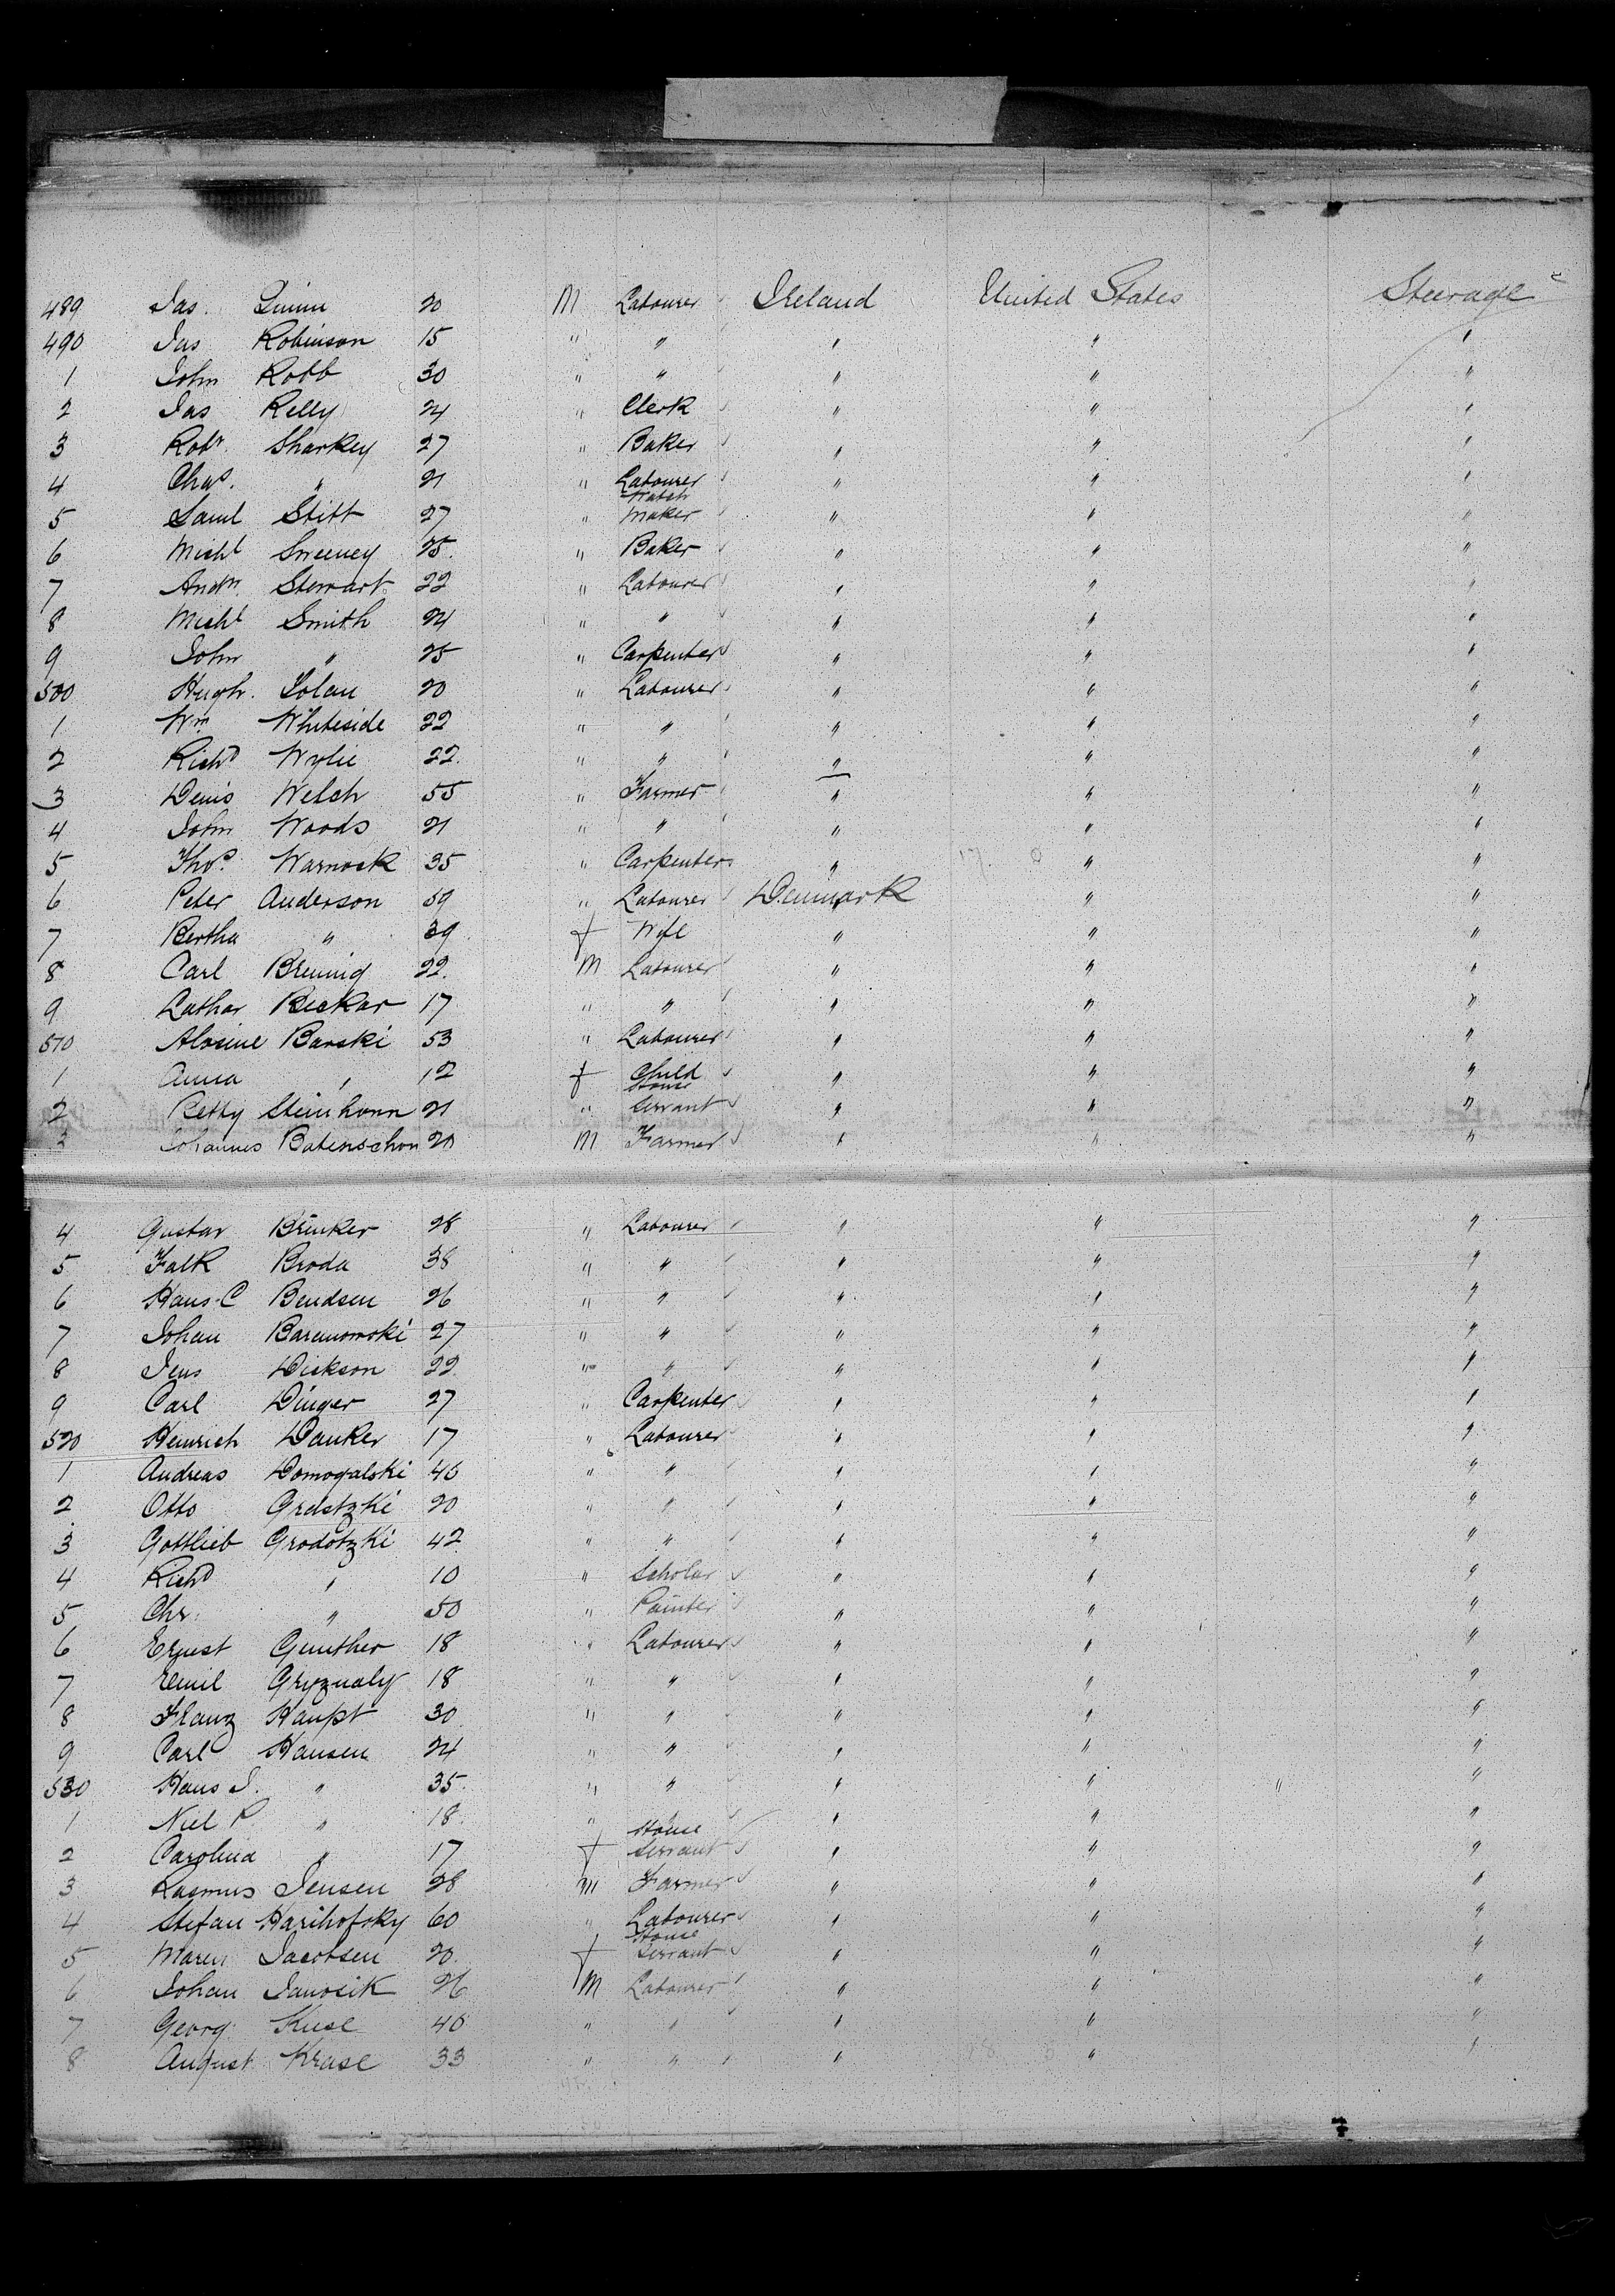 489 Jas. Quinn 20 M Labourer Ireland United States Steerage
490 Jas Robinson 15 " " " " "
1 John Robb 30 " " " " "
2 Jas Kelly 24 " Clerk " " "
3 Robt. Sharkey 27 " Baker " " "
4 Chas. " 21 " Labourer " " "
5 Saml Stitt 27 " Watch Maker " " "
6 Michl Sweeney 25. " Baker " " "
7 Andw. Stewart 22 " Labourer " " "
8 Michl Smith 24 " " " " "
9 John " 25 " Carpenter " " "
500 Hugh. Tolan 20 " Labourer " " "
1 Wm. Whiteside 22 " " " " "
2 Richd Wylie 22. " " " " "
3 Denis Welch 55 " Farmer " " "
4 John Woods 21 " " " " "
5 Thos. Warnock 35 " Carpenter " " "
6 Peter Anderson 59 " Labourer Denmark " "
7 Bertha " 39 f Wife " " "
8 Carl Breunig 22. M Labourer " " "
9 Lathar Beckar 17 " " " " "
510 Alosine Barski 53 " Labourer " " "
1 Anna " 12 f Child " " "
2 Betty Steinhorn 21 " House Servant " " "
3 Johannes Batenschon 20 M Farmer " " "
4 Gustav Brinker 28 " Labourer " " "
5 Falk Broda 38 " " " " "
6 Hans C Bendsen 26 " " " " "
7 Johan Baranowski 27 " " " " "
8 Jens Dickson 22 " " " " "
9 Carl Dinger 27 " Carpenter " " "
520 Heinrich Danker 17 " Labourer " " "
1 Andreas Domogalski 46 " " " " "
2 Otto 20 " " " " "
3 Gottlieb Grodotzki 42 " " " " "
4 Richd " 10 " Scholar " " "
5 Chr. " 50 " Painter " " "
6 Ernest Gunther 18 " Labourer " " "
7 Emil Gryznaly 18 " " " " "
8 Franz Haupt 30 " " " " "
9 Carl Hansen 24 " " " " "
530 Hans J. " 35. " " " " " "
1 Niel P. " 18. " " " " "
2 Carolina " 17 f House Servant " " "
3 Rasmus Jensen 28 m Farmer " " "
4 Stefan Harihofsky 60 " Labourer " " "
5 Maren Jacobsen 20. f House Servant " " "
6 Johan Janosik 26 M Labourer " " "
7 Georg Kuse 46 " " " " "
8 August Krase 33 " " " " "